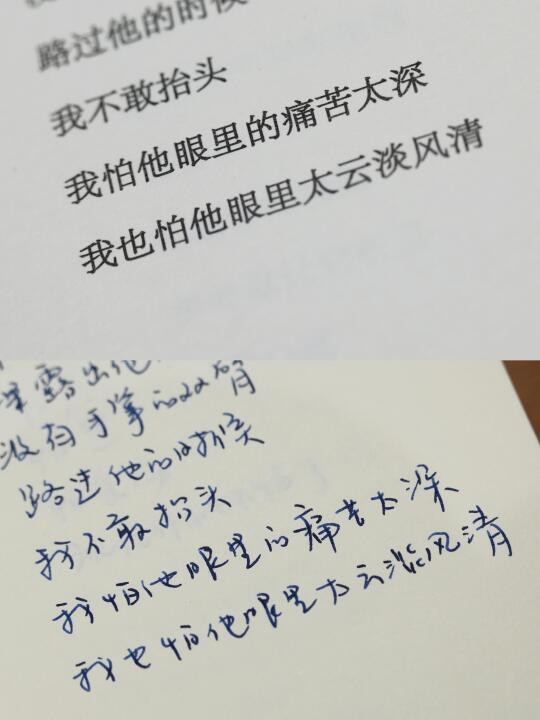 路过他的时候
我不敢抬头
我怕他眼里的痛苦太深
我也怕他眼里太云淡风清
裸露出他
没有手掌的双臂
路过他的时候
我不敢抬头
我怕他眼里的痛苦太深
我也怕他眼里太云淡风清